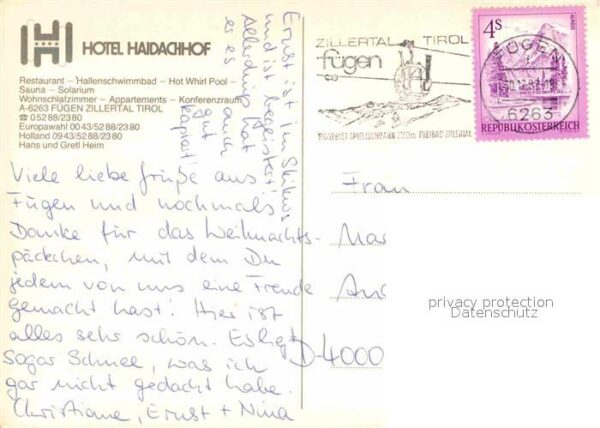 HOTEL HAIDACHHOF
Restaurant – Hallenschwimmbad – Hot Whirl Pool –
Sauna – Solarium
Wohnschlafzimmer – Appartements – Konferenzraum
A-6263 FÜGEN ZILLERTAL TIROL
☎ 05288/2380
Europawahl 0043/5288/2380
Holland 0943/5288/2380
Hans und Gretl Heim
Viele liebe Grüße aus
Fügen und nochmals
Danke für das Weihnachts-
päckchen, mit dem Du
jedem von uns eine Freude
gemacht hast! Hier ist
alles sehr schön. Es ligt
Sogar Schnee, was ich
gar nicht gedacht habe.
Christiane, Ernst + Nina
Ernst ist im Skikurs
und ist begeistert!
Allerdings hat
er es auch
gut
kapiert
ZILLERTAL TIROL
fügen
4S
REPUBLIK ÖSTERREICH
FÜGEN
6263
Frau
Mar
And
D-4000
privacy protection
Datenschutz